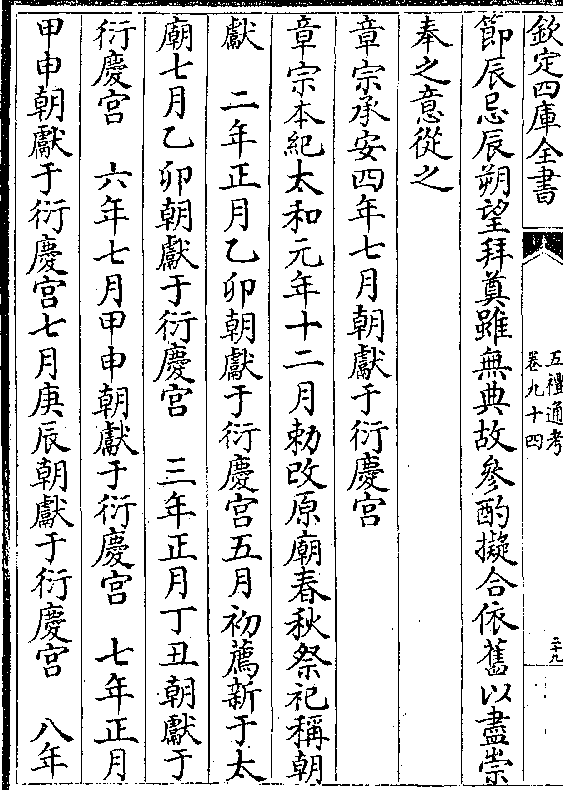 欽定四庫全書
五禮通考
卷九十四
二十九
節辰忌辰朔望拜奠雖無典故參酌擬合依舊以盡崇
奉之意從之
章宗承安四年七月朝獻于衍慶宫
章宗本紀太和元年十二月勅改原廟春秋祭祀稱朝
獻　二年正月乙卯朝獻于衍慶宫五月初薦新于太
廟七月乙卯朝獻于衍慶宫　三年正月丁丑朝獻于
衍慶宫　六年七月甲申朝獻于衍慶宫　七年正月
甲申朝獻于衍慶宫七月庚辰朝獻于衍慶宫　八年